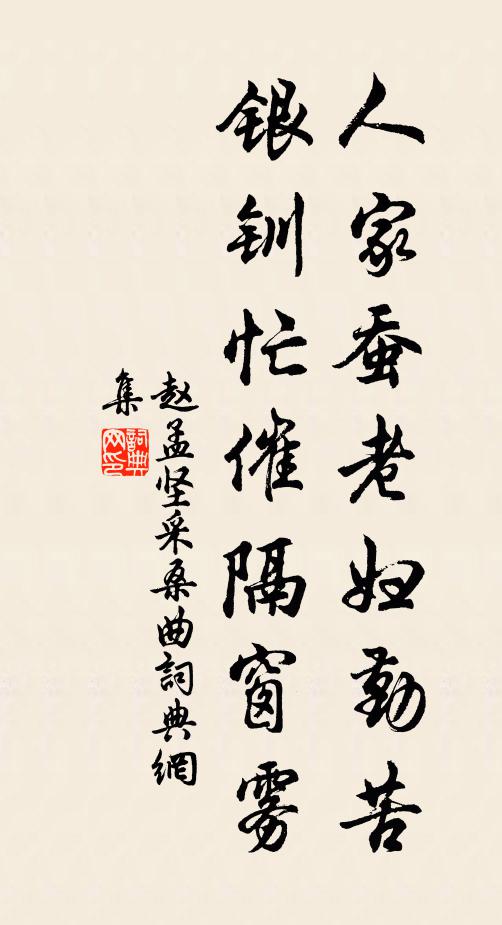 人家蚕老妇勤苦
银钏忙催隔窗雾
赵孟坚采桑曲詞典網
集
詞典
网印